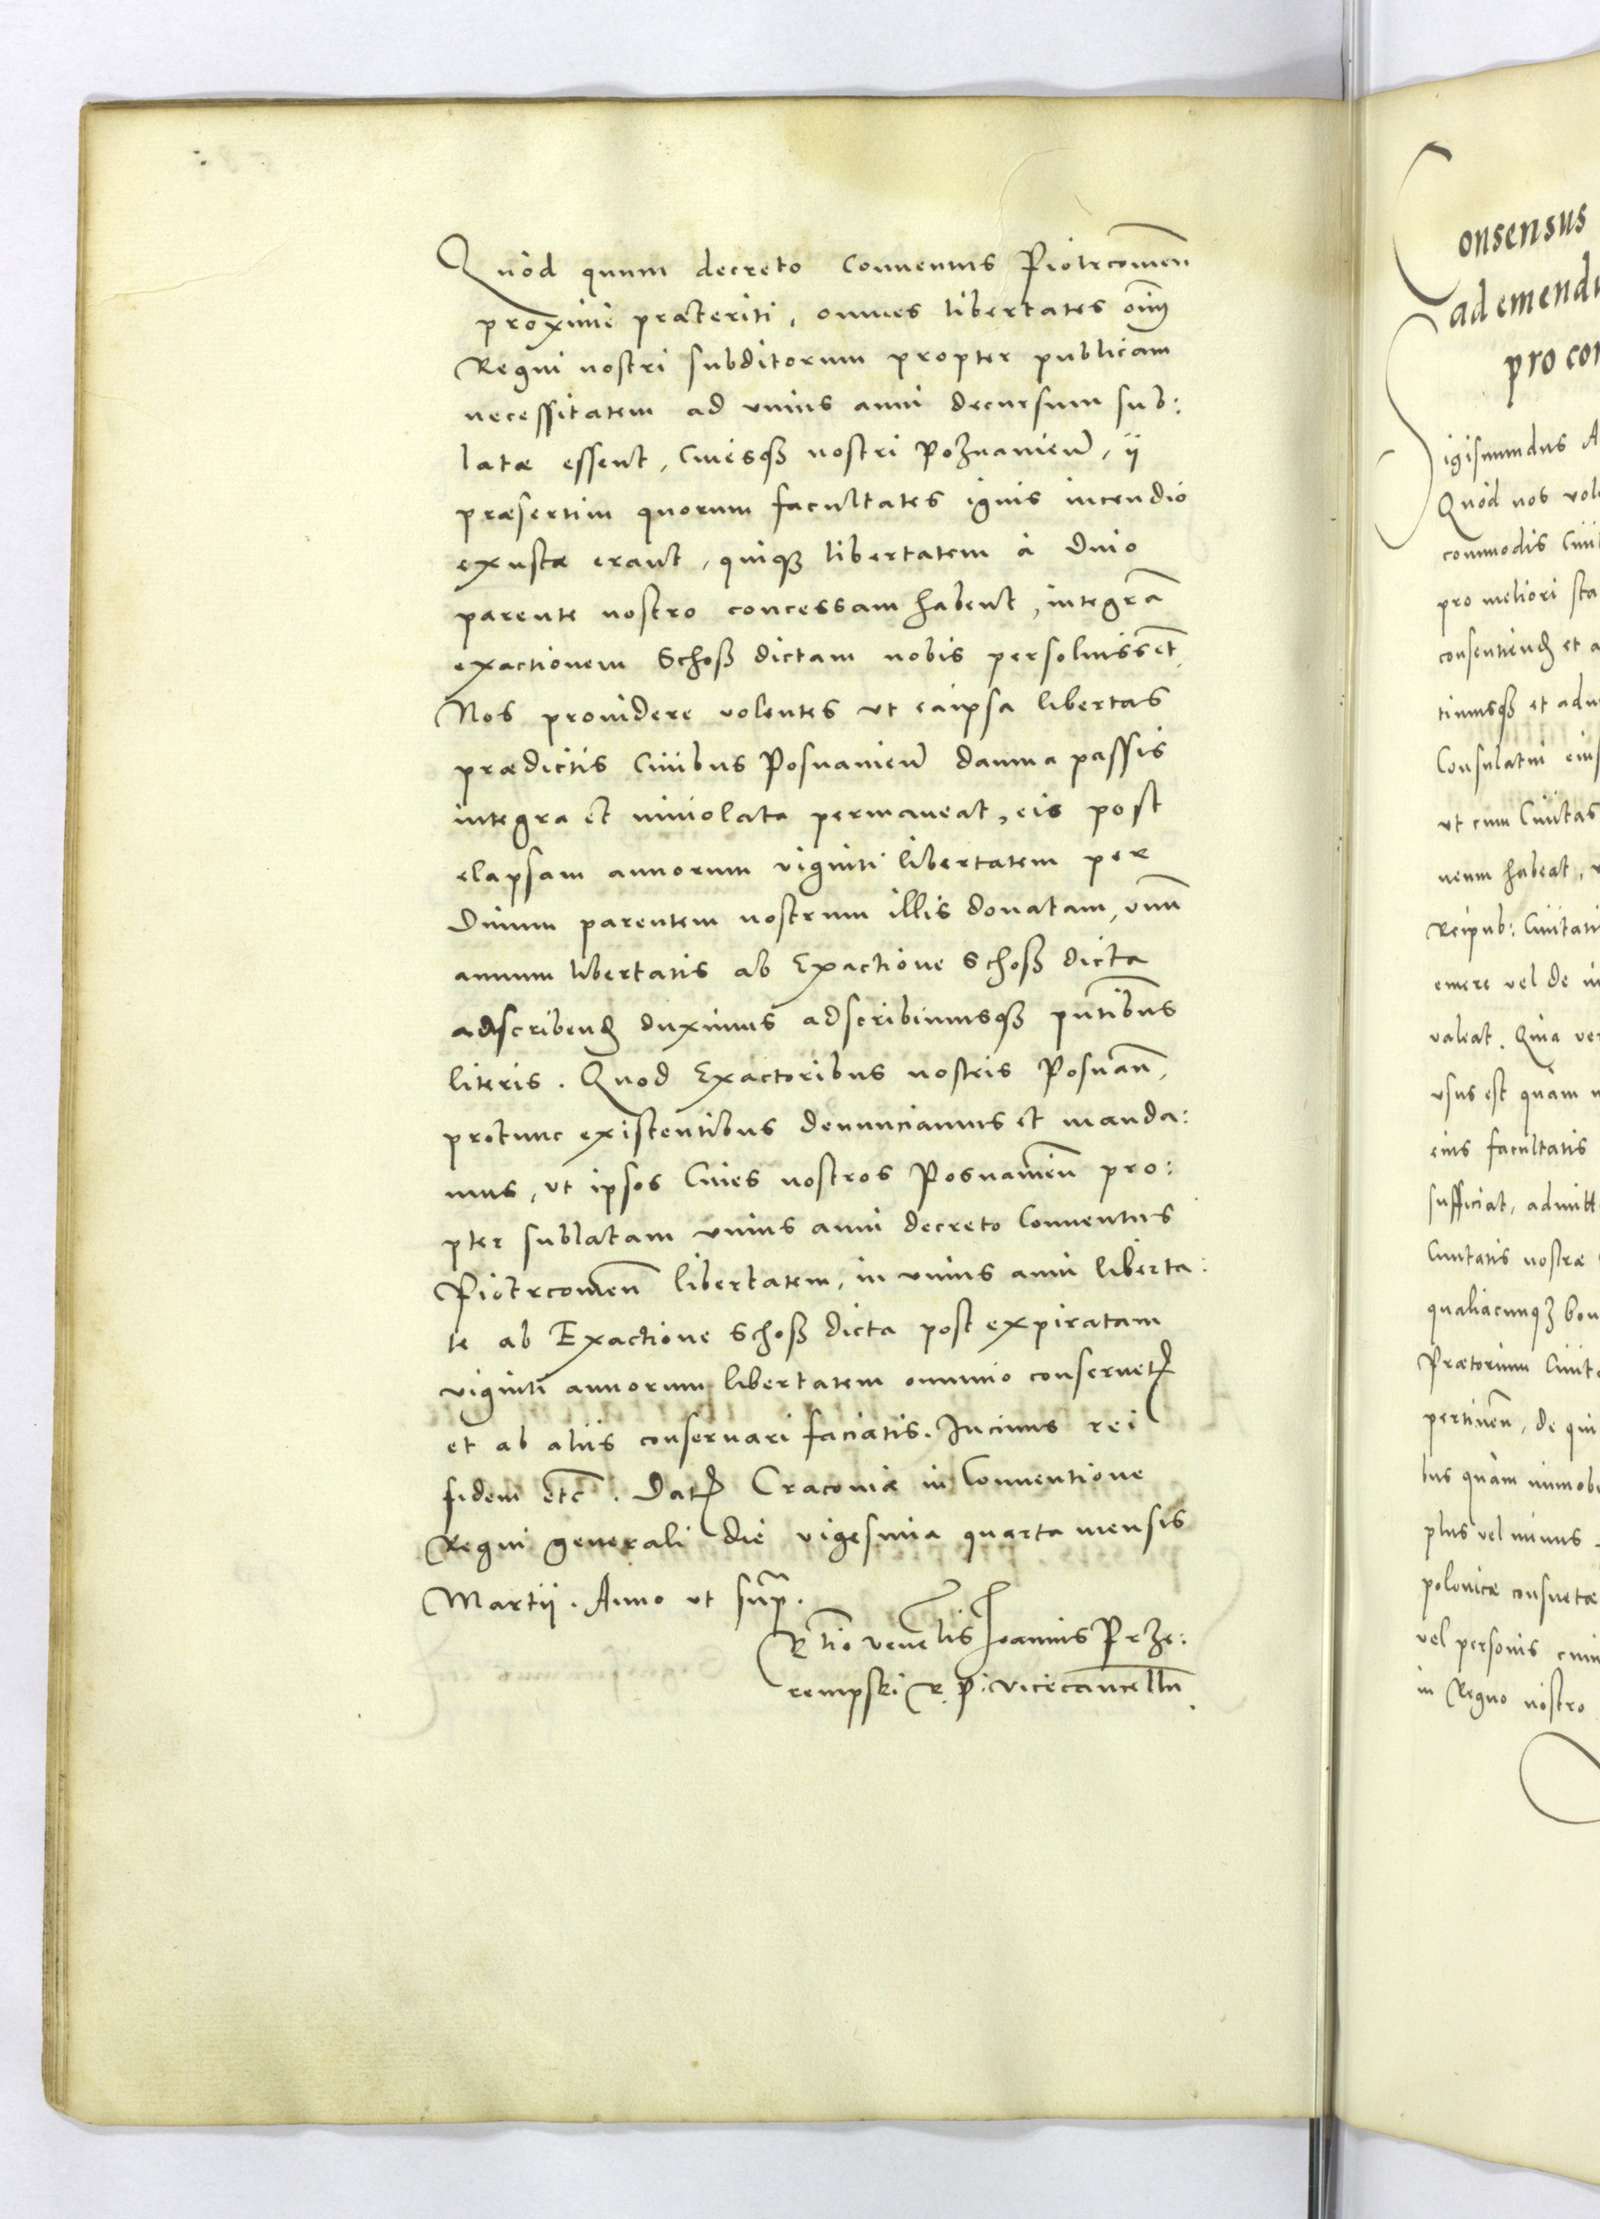 Quòd quum decreto Conuentus Piotrcouien̄
proxime præteriti, omnes libertates om̄iū
Regni nostri subditorum propter publicam
necessitatem ad vnius anni decursum sub:
latæ essent, Ciuesqȝ nostri Poznanien̄, ij
præsertim quorum facultates ignis incendio
exustæ erant, quiqȝ libertatem à Diuo
parente nostro concessam habent, integrā
exactionem Schoß dictam nobis persoluissēt,
Nos prouidere volentes vt eaipsa libertas
prædictis Ciuibus Posnanien̄ damna passis
integra et inuiolata permaneat, eis post
elapsam annorum viginti libertatem per
Diuum parentem nostrum illis donatam, vnū
annum libertatis ab Exactione Schoß dicta
adscribend̄ duximus adscribimusqȝ pn̄tibus
literis. Quod Exactoribus nostris Posnan̄,
protunc existentibus denunciamus et manda:
mus, vt ipsos Ciues nostros Posnanien̄ pro:
pter sublatam vnius anni decreto Conuentus
Piotrcouien̄ libertatem, in vnius anni liberta:
te ab Exactione Schoß dicta post expiratam
viginti annorum libertatem omnino conseruet̄
et ab aliis conseruari faciatis. In cuius rei
fidem etc̄. Dat̄ Cracouiæ in Conuentione
Regni generali die vigesima quarta mensis
Martij. Anno vt sup̄.
R̄tio ven̄elis Joannis Prze:
rempski R. P. Vicecancelln̄.
onsensus
ad emendu
pro con
igismundus A
Quòd nos vol
commodis Ciui
pro meliori sta
consentiend̄ et a
timusqȝ et adm
Consulatui eius
vt cum Ciuitas
neum habeat,
Reipub: Ciuitati
emere vel de
valeat. Quia ver
vsus est quàm
eius facultatis
sufficiat, admitt
Ciuitatis nostræ
qualiacunqȝ bon
Prætorium Ciuit
pertinen̄, de qui
bus quàm immobi
plus vel minus
polonicæ consuetæ
vel personis
in Regno nostro